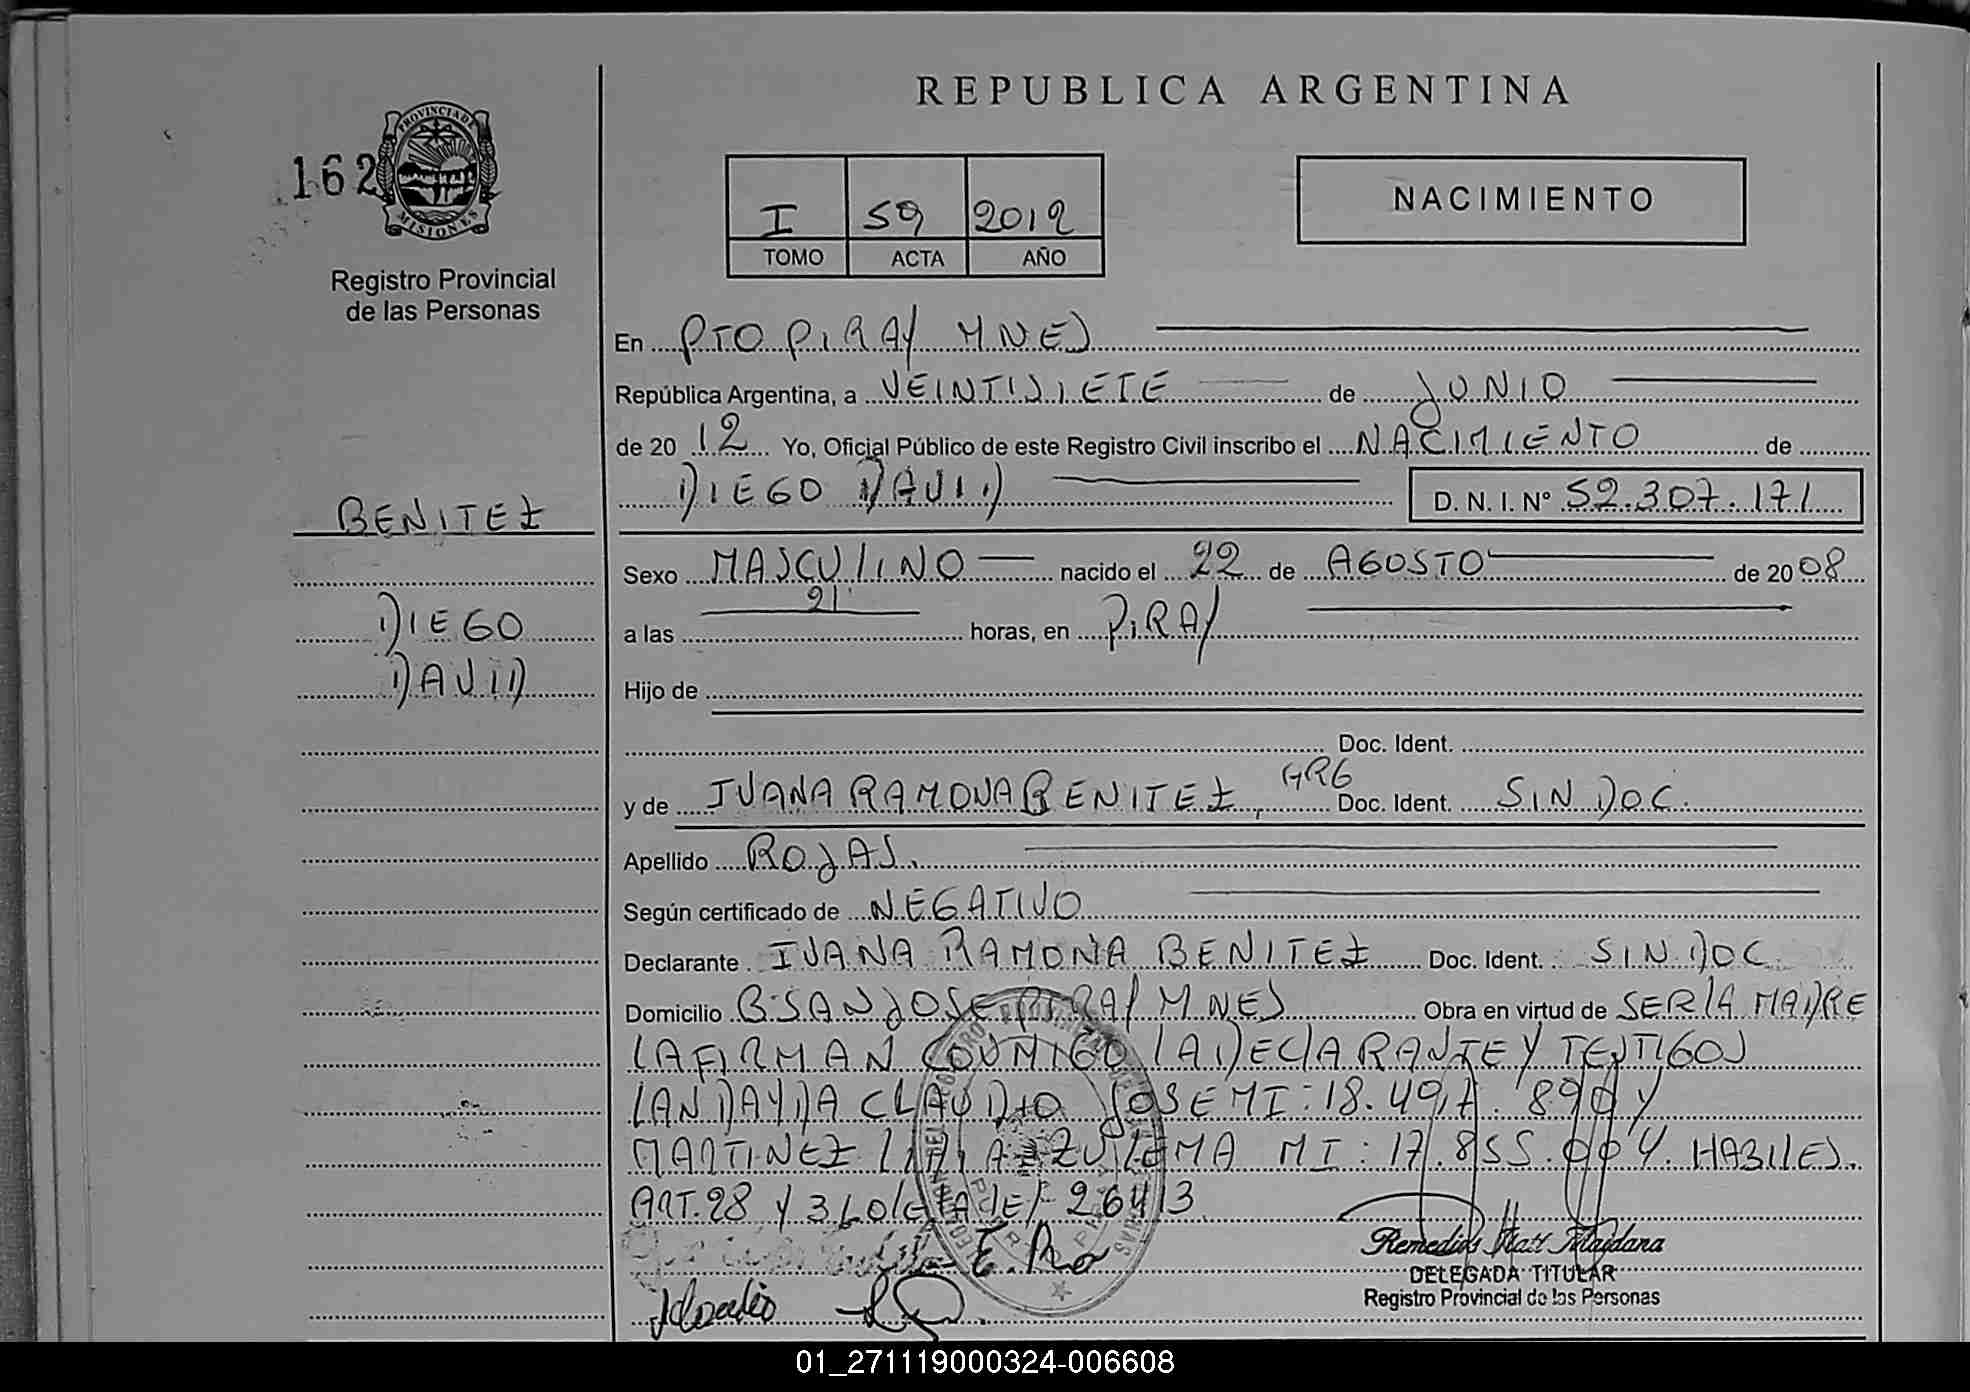 REPUBLICA ARGENTINA
162
PROVINCIA DE MISIONES
Registro Provincial
de las Personas
I 59 2012
TOMO ACTA AÑO
NACIMIENTO
En PTO PIRAY MNES
República Argentina, a VEINTISIETE de JUNIO
de 20 12 Yo, Oficial Público de este Registro Civil inscribo el NACIMIENTO de
DIEGO DAVID D. N. I. Nº 52.307.171
BENITEZ
Sexo MASCULINO nacido el 22 de AGOSTO de 20 08
DIEGO
DAVID
a las 21 horas, en PIRAY
Hijo de
Doc. Ident.
y de JUANA RAMONA BENITEZ, ARG Doc. Ident. SIN DOC.
Apellido ROJAS.
Según certificado de NEGATIVO
Declarante JUANA RAMONA BENITEZ Doc. Ident. SIN DOC
Domicilio B: SAN JOSE PIRAY MNES Obra en virtud de SER LA MADRE
LA FIRMAN CONMIGO LA DECLARANTE Y TESTIGOS
LANDAYDA CLAUDIO JOSE MI: 18.497.890 Y
MARTINEZ LIDIA ZULEMA MI: 17.855.004. HABILES.
ART. 28 Y 36 LEY 26413
Remedios Itatí Maidana
DELEGADA TITULAR
Registro Provincial de las Personas
01_271119000324-006608